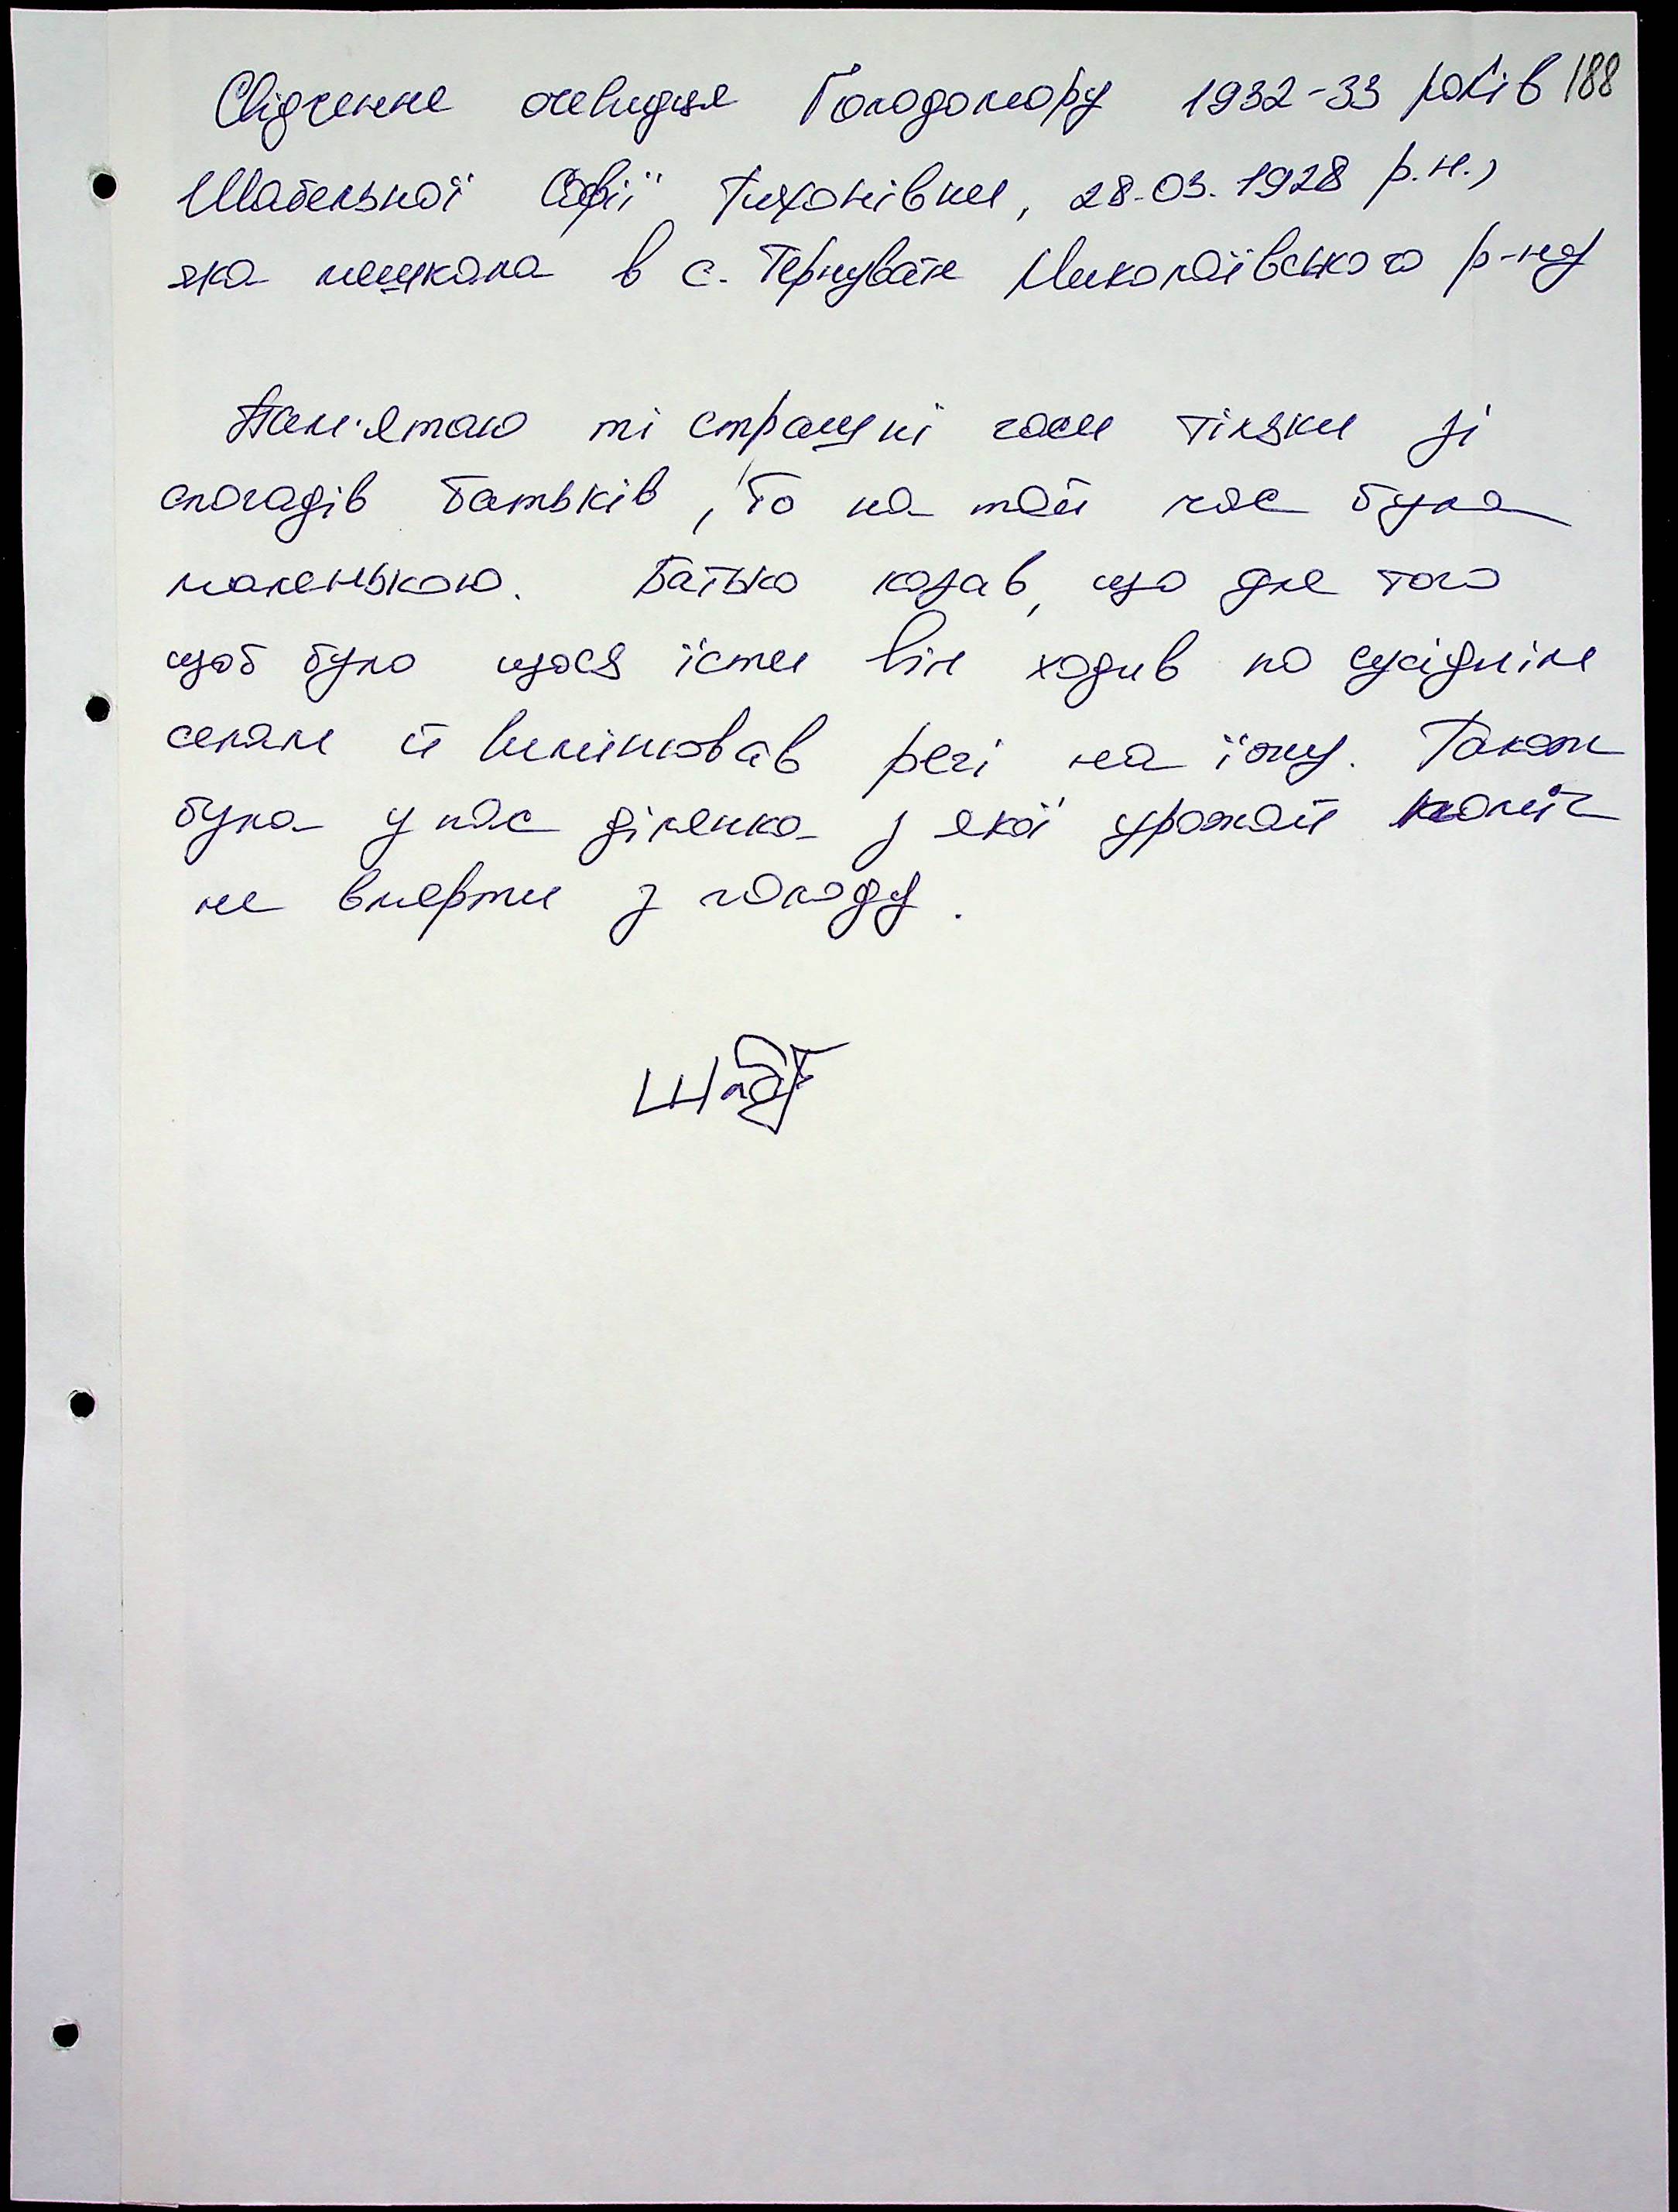 Свідчення очевидця Голодомору 1932-33 років 188
Шабельної Софії Тихонівни, 28.03.1928 р.н.,
яка мешкала в с. Тернувате Миколаївського р-ну
Пам'ятаю ті страшні часи тільки зі
спогадів батьків, бо на той час була
маленькою. Батько казав, що для того
щоб було щось їсти він ходив по сусіднім
селам й вимінював речі на їжу. Також
була у нас ділянка з якої урожай поміг
не вмерти з голоду.